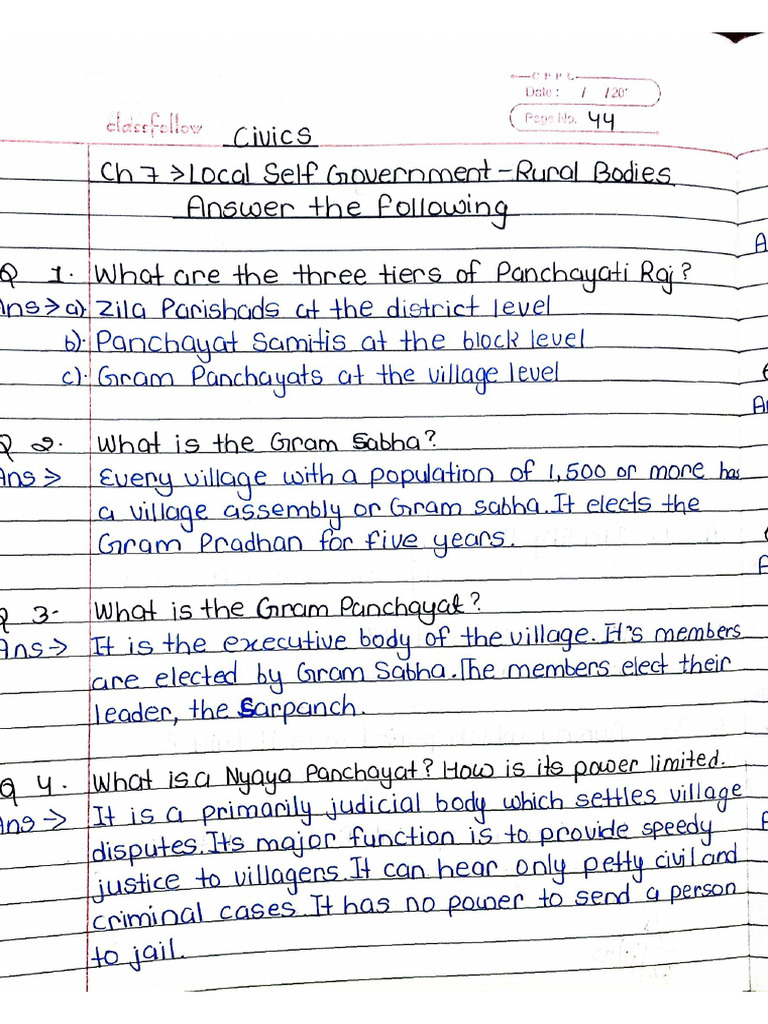 C P P L
Date : / /20
classfellow
Page No. 44
Civics
Ch 7 > Local Self Government - Rural Bodies
Answer the following
Q 1. What are the three tiers of Panchayati Raj?
Ans > a) Zila Parishads at the district level
b). Panchayat Samitis at the block level
c). Gram Panchayats at the village level
Q 2. What is the Gram Sabha?
Ans > Every village with a population of 1,500 or more has
a village assembly or Gram sabha. It elects the
Gram Pradhan for five years.
Q 3. What is the Gram Panchayat?
Ans → It is the executive body of the village. It's members
are elected by Gram Sabha. The members elect their
leader, the Sarpanch.
Q 4. What is a Nyaya Panchayat? How is its power limited.
Ans → It is a primarily judicial body which settles village
disputes. Its major function is to provide speedy
justice to villagers. It can hear only petty civil and
criminal cases. It has no power to send a person
to jail.